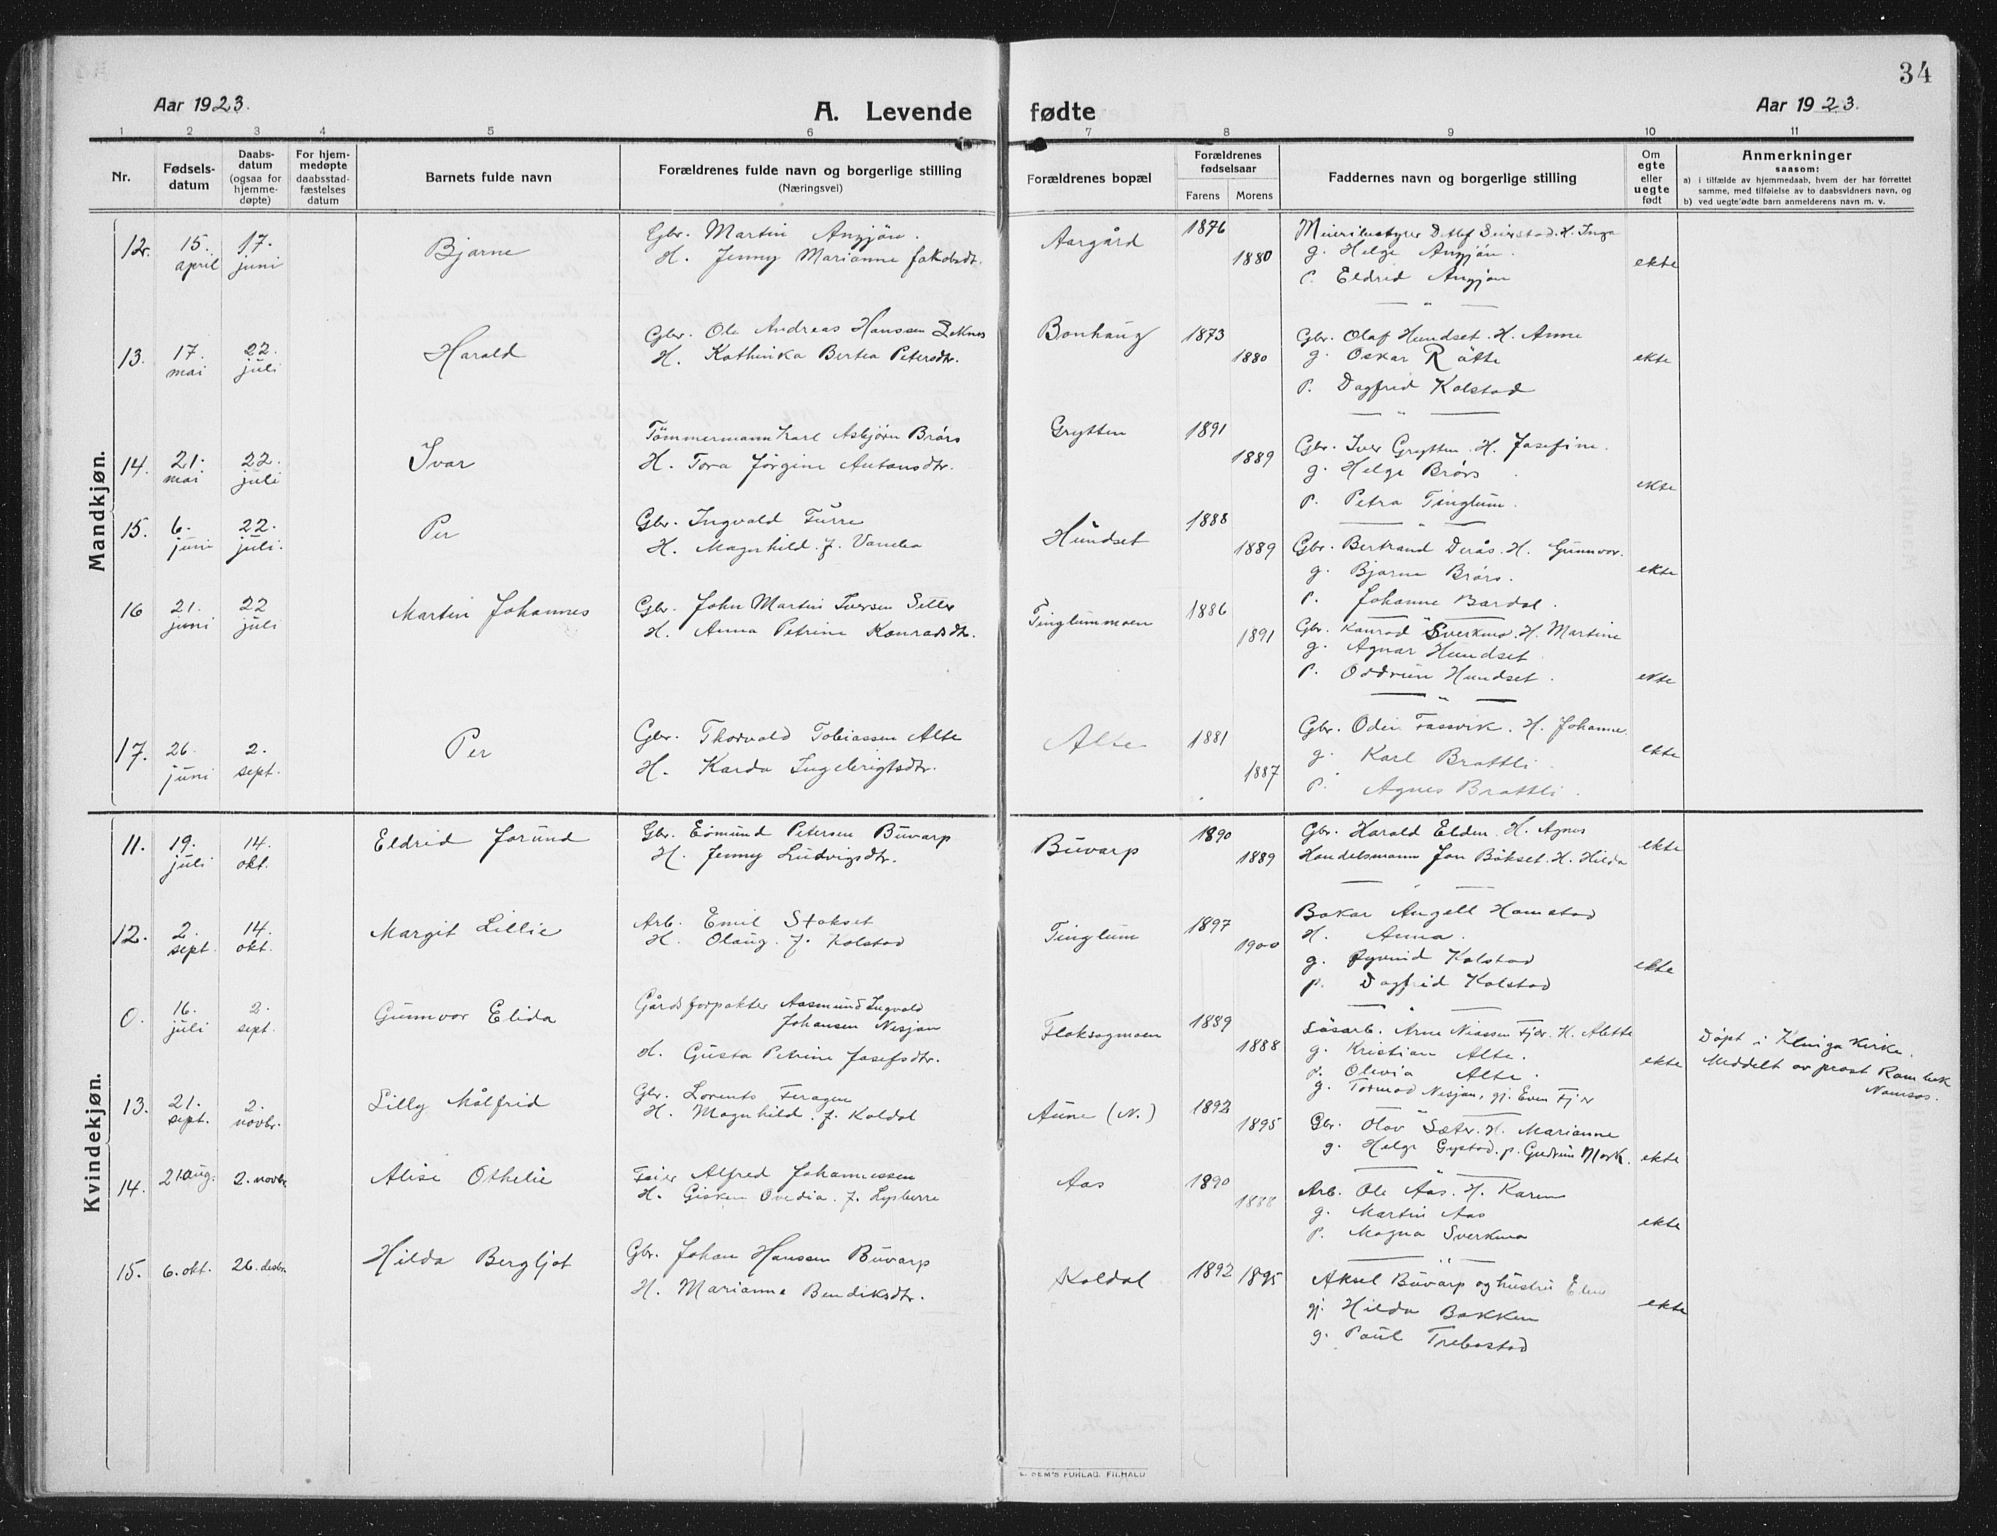 34
Aar 1923.
A. Levende fødte
Aar 1923.
1 2 3 4 5 6 7 8 9 10 11
Nr.
Fødsels-
datum
Daabs-
datum
(ogsaa for
hjemme-
døpte)
For hjem-
medøpte
daabsstad-
fæstelses
datum
Barnets fulde navn
Forældrenes fulde navn og borgerlige stilling
(Næringsvei)
Forældrenes bopæl
Forældrenes
fødselsaar
Farens Morens
Faddernes navn og borgerlige stilling
Om
egte
eller
uegte
født
Anmerkninger
saasom:
a) i tilfælde av hjemmedaab, hvem der har forrettet
samme, med tilføielse av to daabsvidners navn, og
b) ved uegte fødte barn anmelderens navn m. v.
Mandkjøn.
12. 15. april 17. juni Bjarne
Gbr. Martin
H. Jenny Marianne Jakobsdtr.
Aargård 1876 1880
Meieribestyrer H. Inga
g. Helge
p. Eldrid
ekte
13. 17. mai 22. juli Harald
Gbr. Ole Andreas Hanssen
H. Kathinka Bertea Petersdtr.
Bonhaug 1873 1880
Gbr. Olaf Hundset. H. Anne
g. Oskar Råtte
p. Dagfrid Kolstad
ekte
14. 21. mai 22. juli Ivar
Tømmermann Karl Asbjørn Brørs
H. Tora Jørgine Antonsdtr.
Grytten 1891 1889
Gbr. Iver Grytten. H. Josefine.
g. Helge Brørs
p. Petra Tinglum.
ekte
15. 6. juni 22. juli. Per
Gbr. Ingvald Furre
H. Magnhild. f.
Hundset 1888 1889
Gbr. Bertrand Derås. H. Gunnvor.
g. Bjarne Brørs.
p. Johanne Bardal.
ekte
16 21. juni 22 juli Martin Johannes
Gbr. John Martin Iversen
H. Anna Petrine Konradsdtr.
Tinglummoen 1886 1891
Gbr. Konrad Sverkmo. H. Martine
g. Agnar Hundset
p. Oddrun Hundset.
ekte
17. 26. juni 2. sept. Per
Gbr. Thorvald Tobiassen Alte
H. Karda Ingebrigtsdtr.
Alte 1881 1887
Gbr. Odin Fossvik. H. Johanne.
g. Karl Brattli
p. Agnes Brattli.
ekte
Kvindekjøn.
11. 19. juli 14. okt. Eldrid Jorund
Gbr. Edmund Petersen Buvarp
H. Jenny Ludvigsdtr.
Buvarp 1890 1889
Gbr. Harald Elden. H. Agnes
Handelsmann Jon Bøkset. H. Hilda
ekte
12. 2. sept. 14. okt. Margit Lillie
Arb. Emil Stokset
H. Olaug. f. Kolstad
Tinglum 1897 1900
Baker Angell Homstad
H. Anna.
g. Øyvind Kolstad
p. Dagfrid Kolstad
ekte
0. 16. juli 2. sept. Gunnvor Elida
Gårdsforpakter Aasmund Ingvald
Johansen Nesjan
H. Gusta Petrine Josefsdtr.
Flaksogmoen 1889 1888
Løsarb. Arne Fjer. H. Alette
g. Kristian Alte.
p. Olevia Alte.
g. Tormod Nesjan, gj. Even Fjer
ekte
Døpt i Klinga Kirke.
Meddelt av prost Rambek
Namsos.
13. 21. sept. 2. novbr. Lilly Målfrid
Gbr. Lorents Feragen
H. Magnhild. f. Koldal
Aune (N.) 1892 1895
Gbr. Olav Sæter. H. Marianne
g. Helge Gystad. p. Gudrun Mork.
ekte
14. 21. aug. 2. novbr. Alise Othelie
Feier Alfred Johannessen
H. Gisken Ovedia. f. Lysberre
Aas 1890 1888
Arb. Ole Aas. H. Karen
g. Martin Aas
p. Magna Sverkmo
ekte
15. 6. okt. 26. desbr. Hilda Bergljot
Gbr. Johan Hanssen Buvarp
H. Marianne Bendiksdtr.
Koldal 1892 1895
Aksel Buvarp og hustru Elen
gj. Hilda Bakken
g. Paul Trebostad
ekte
E. SEM'S FORLAG. F.HALD